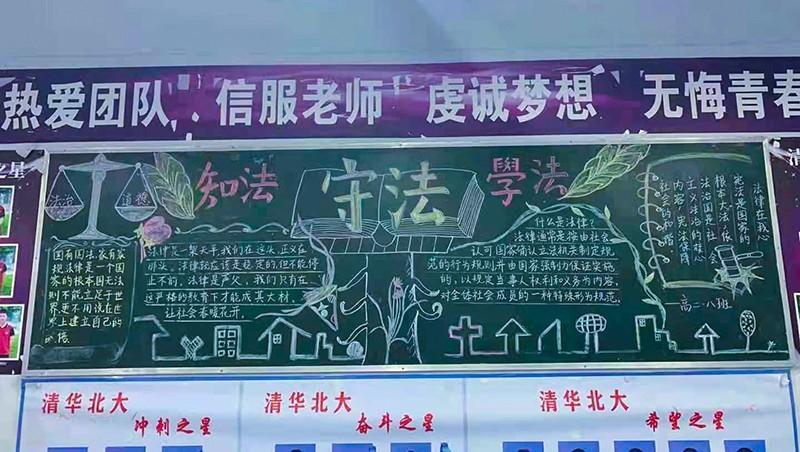 热爱团队 信服老师 虔诚梦想 无悔青春
之星
知法 守法 學法
法治 道德
国有国法,家有家
规法律是一个国
家的根本国无法
则不能立足于世
界更不用说在世
界上建立自己的
法律是一架天平,我们在这头,正义在
那头。法律应该是稳定的,但不能停
止不前。法律是严父,我们只有在
这严格的教育下才能成其大材,
让社会春暖花开。
什么是法律?
法律通常是指由社会
认可国家确认立法机关制定规
范的行为规则并由国家强制力保证实施
的,以规定当事人权利和义务为内容,
对全体社会成员的一种特殊形为规范。
法律在我心
宪法是国家的
根本大法,依
法治国是社会
主义法治的
内容,宪法保障
社会的和谐
——高二·八班
清华北大 清华北大 清华北大
冲刺之星 奋斗之星 希望之星